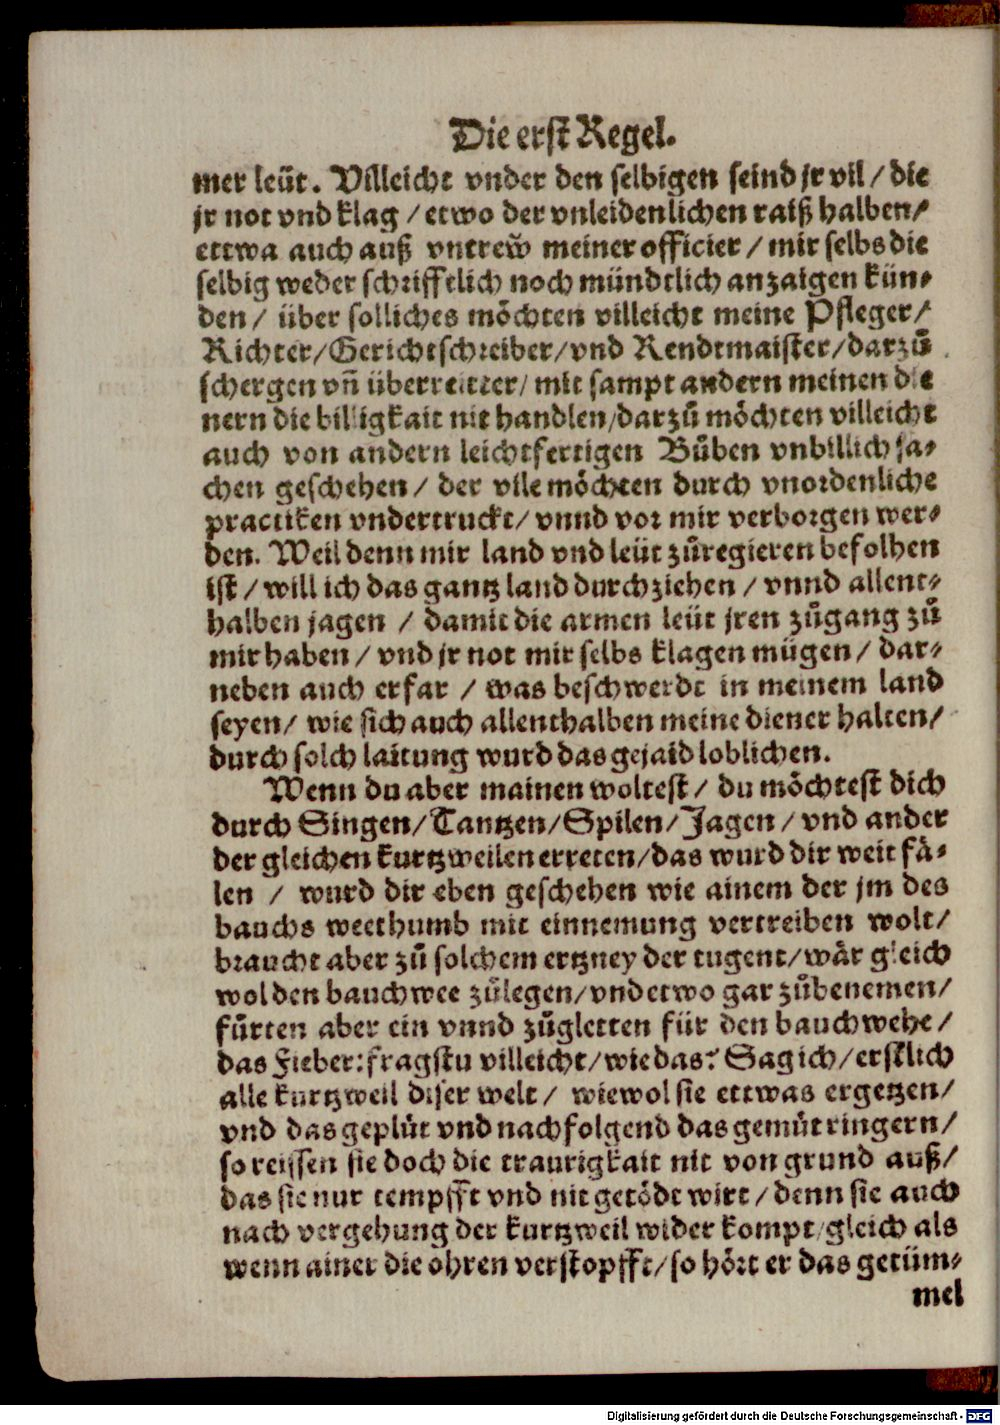 Die erst Regel.
mer leüt. Villeicht vnder den selbigen seind jr vil / die
jr not vnd klag / etwo der vnleidenlichen raiß halben /
ettwa auch auß vntrew̃ meiner officier / mir selbs die
selbig weder schrifftlich noch mündtlich anzaigen kün⸗
den / über solliches möchten villeicht meine Pfleger /
Richter / Gerichtschreiber / vnd Rendtmaister / darzů
schergen vñ überreitter / mit sampt andern meinen die
nern die billigkait nit handlen / darzů möchten villeicht
auch von andern leichtfertigen Bůben vnbillich sa⸗
chen geschehen / der vile möchten durch vnordenliche
practiken vndertruckt / vnnd vor mir verborgen wer⸗
den. Weil denn mir land vnd leüt zůregieren befolhen
ist / will ich das gantz land durchziehen / vnnd allent⸗
halben jagen / damit die armen leüt jren zůgang zů
mir haben / vnd jr not mir selbs klagen mügen / dar⸗
neben auch erfar / was beschwerdt in meinem land
seyen / wie sich auch allenthalben meine diener halten /
durch solch laitung wurd das gejaid loblichen.
Wenn du aber mainen woltest / du möchtest dich
durch Singen / Tantzen / Spilen / Jagen / vnd ander
der gleichen kurtzweilen erreten / das wurd dir weit fä⸗
len / wurd dir eben geschehen wie ainem der jm des
bauchs weethumb mit einnemung vertreiben wolt /
braucht aber zů solchem ertzney der tugent / wär gleich
wol den bauchwee zůlegen / vnd etwo gar zůbenemen /
fürten aber ein vnnd zůgletten für den bauchwehe /
das Fieber: fragstu villeicht / wie das? Sag ich / erstlich
alle kurtzweil diser welt / wiewol sie ettwas ergetzen /
vnd das geplüt vnd nachfolgend das gemüt ringern /
so reissen sie doch die traurigkait nit von grund auß /
das sie nur tempfft vnd nit getödt wirt / denn sie auch
nach vergehung der kurtzweil wider kompt / gleich als
wenn ainer die ohren verstopfft / so hört er das getüm⸗
mel
Digitalisierung gefördert durch die Deutsche Forschungsgemeinschaft - DFG